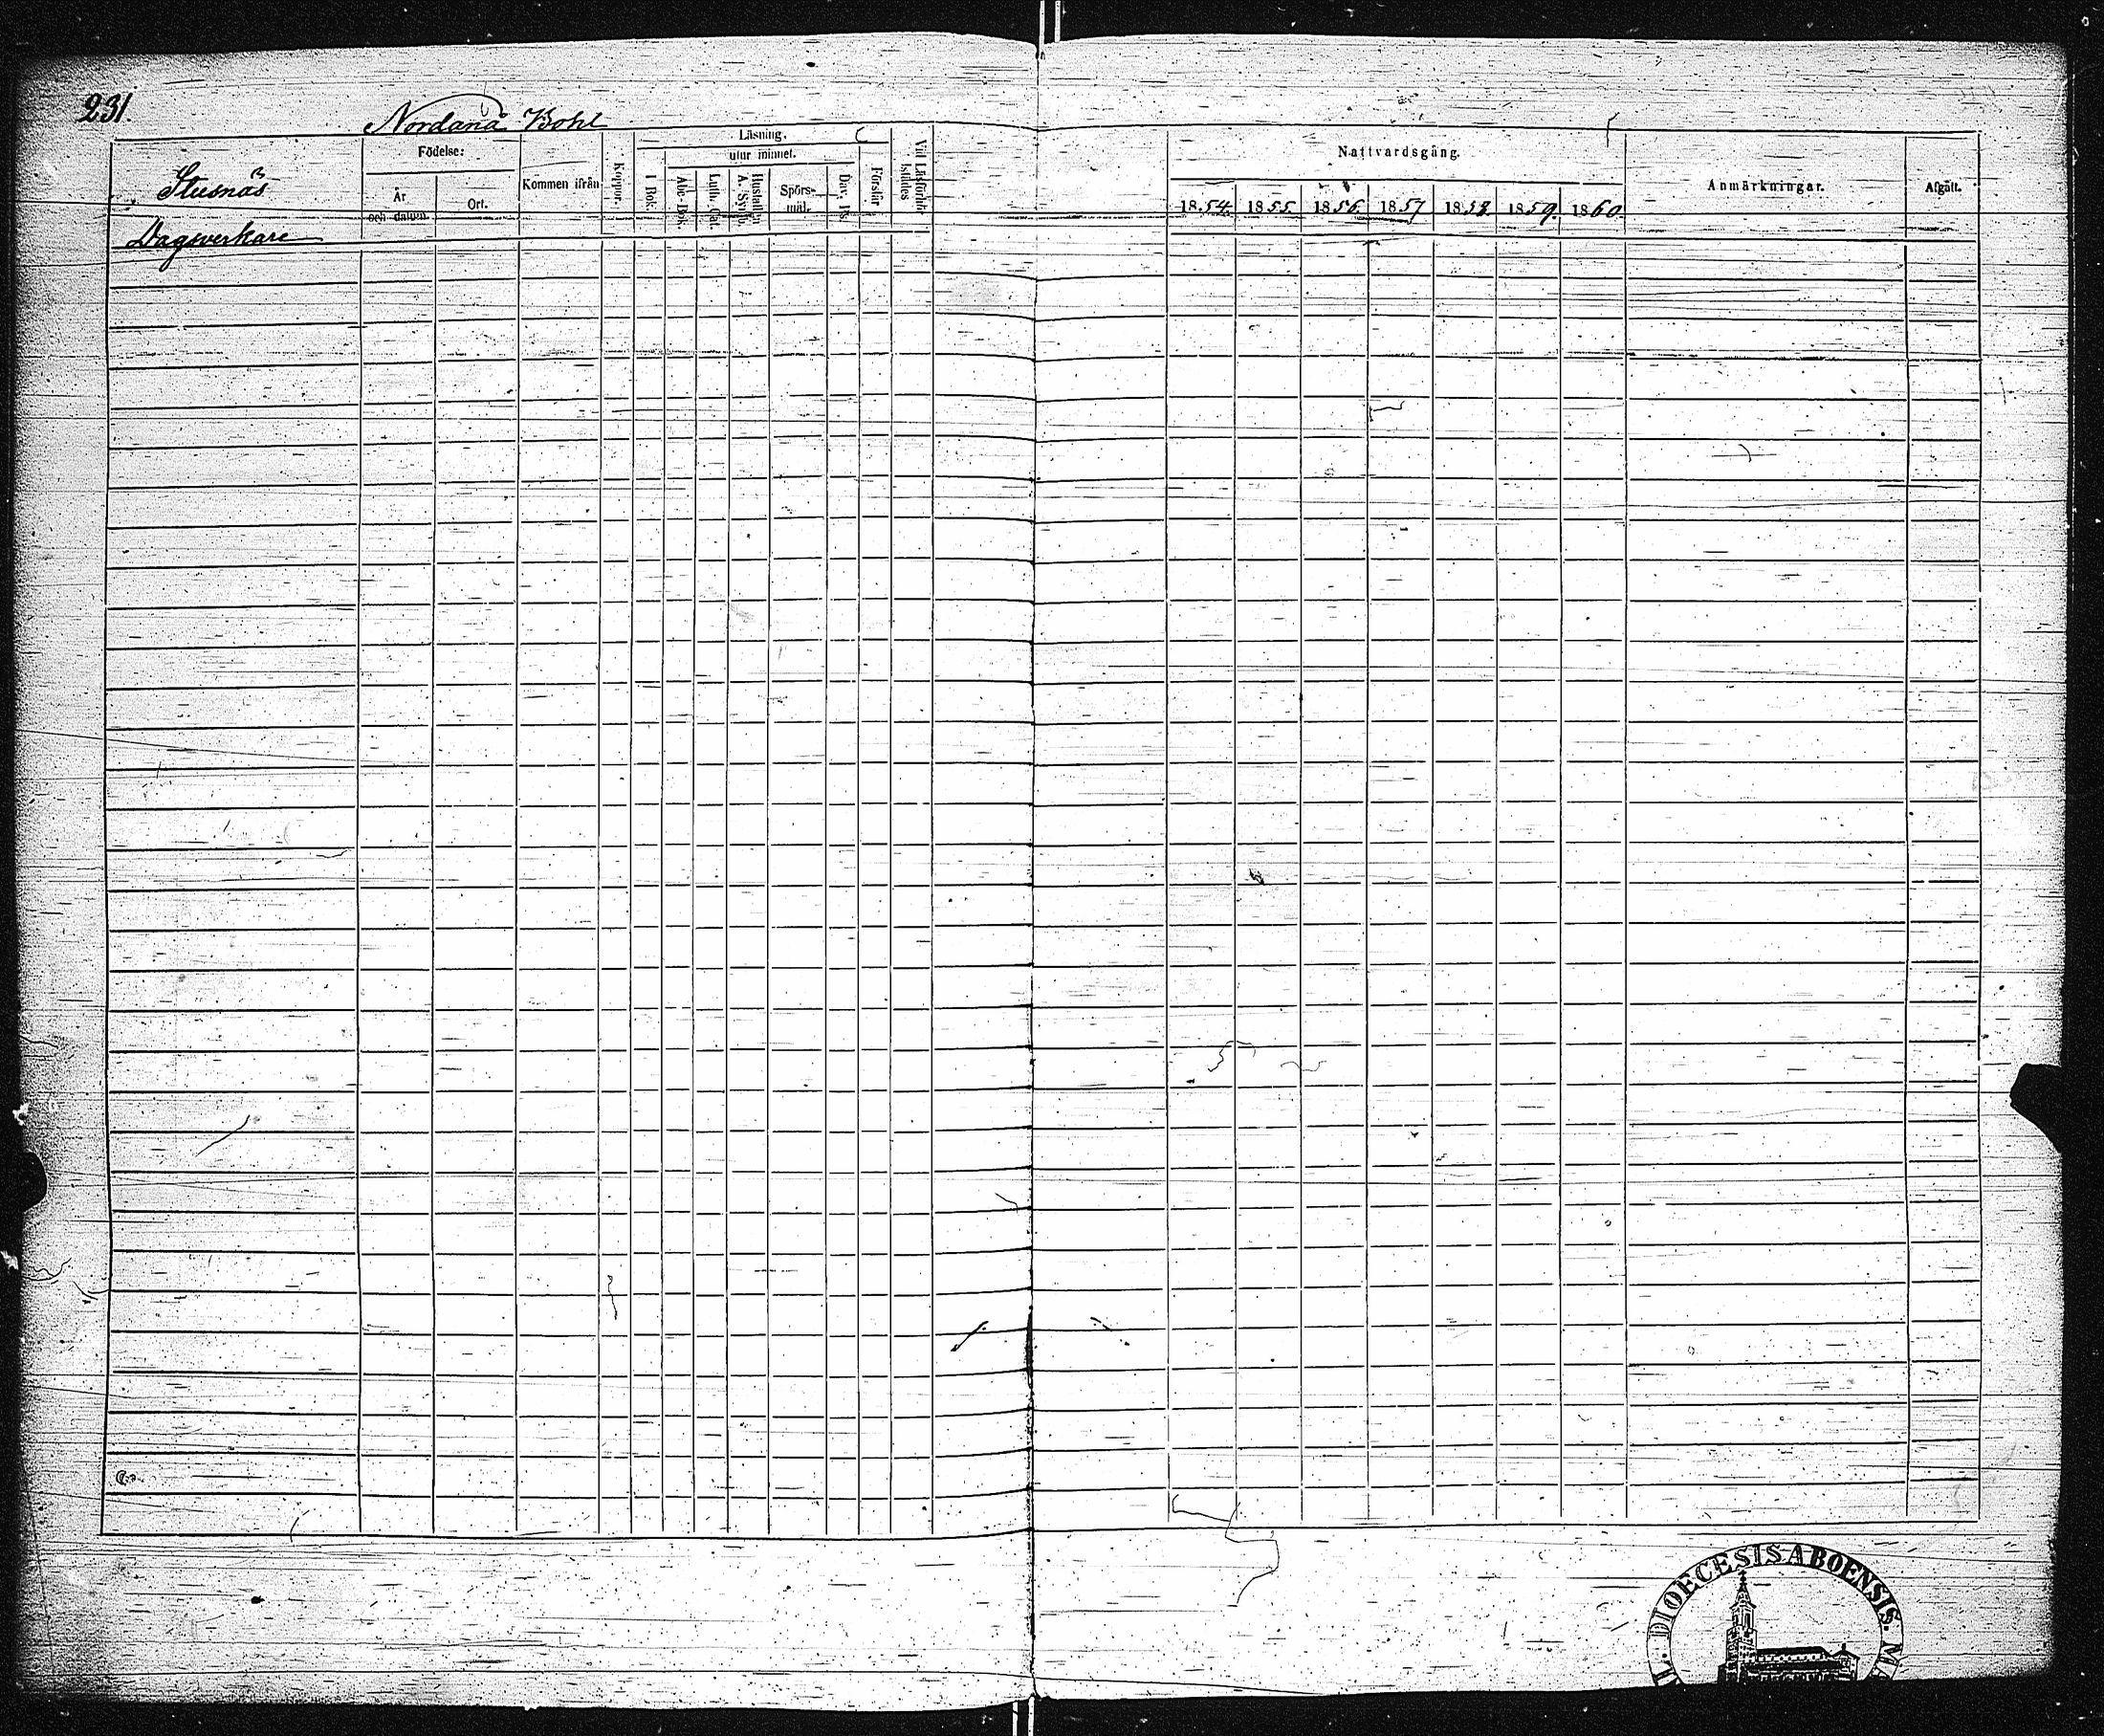 231.
Nordanå Bohl
Stusnäs
Dagsverkare
Födelse:
År och datum.
Ort.
Kommen ifrån
Koppor.
Läsning.
I Bok.
utur minnet.
Abc-Bok.
Luth. Cat.
Hustaflan A. Symb.
Spörsmål.
Dav. Ps.
Förstår
Vid Läsförhör tillstädes
Nattvardsgång.
1854. 1855. 1856. 1857 1858. 1859. 1860.
Anmärkningar.
Afgått.
DIOECESIS ABOENSIS.